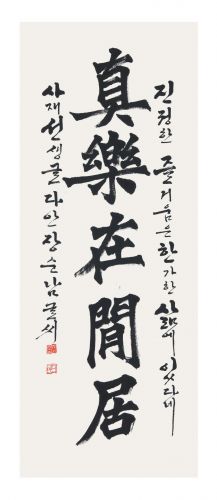 진정한 즐거움은 한가한 삶에 있다네
真樂在閒居
사재선생글 다안 장순남 글씨